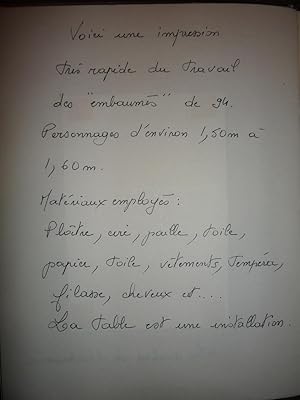 Voici une impression
très rapide du travail
des "embaumés" de 94.
Personnages d'environ 1,50m à
1,60m.
Matériaux employés :
Plâtre, cire, paille, toile,
papier, toile, vêtements, tempéra,
filasse, cheveux et....
La table est une installation.